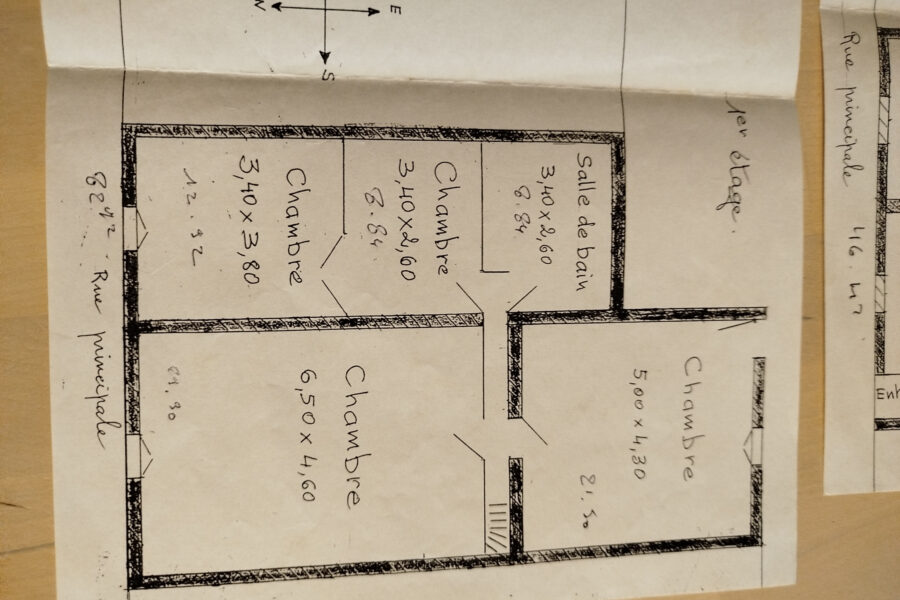 N
E
S
1er étage.
Salle de bain
3,40 x 2,60
8.84
Chambre
3,40 x 2,60
8.84
Chambre
3,40 x 3,80
12.92
Chambre
5,00 x 4,30
21.50
Chambre
6,50 x 4,60
Rue principale
Rue principale 46.